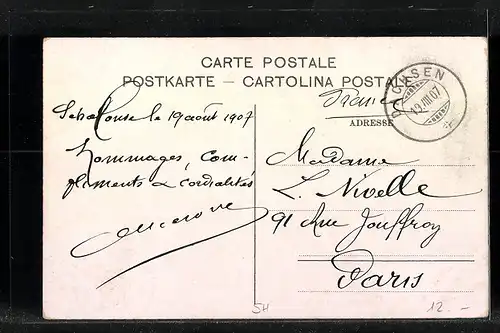 CARTE POSTALE
POSTKARTE — CARTOLINA POSTALE
DACHSEN
19.VIII.07
France
ADRESSE
le 19 août 1907
Hommages, com-
pliments & cordialités
Madame
L. Nivelle
91 Rue Jouffroy
Paris
SH
12.-